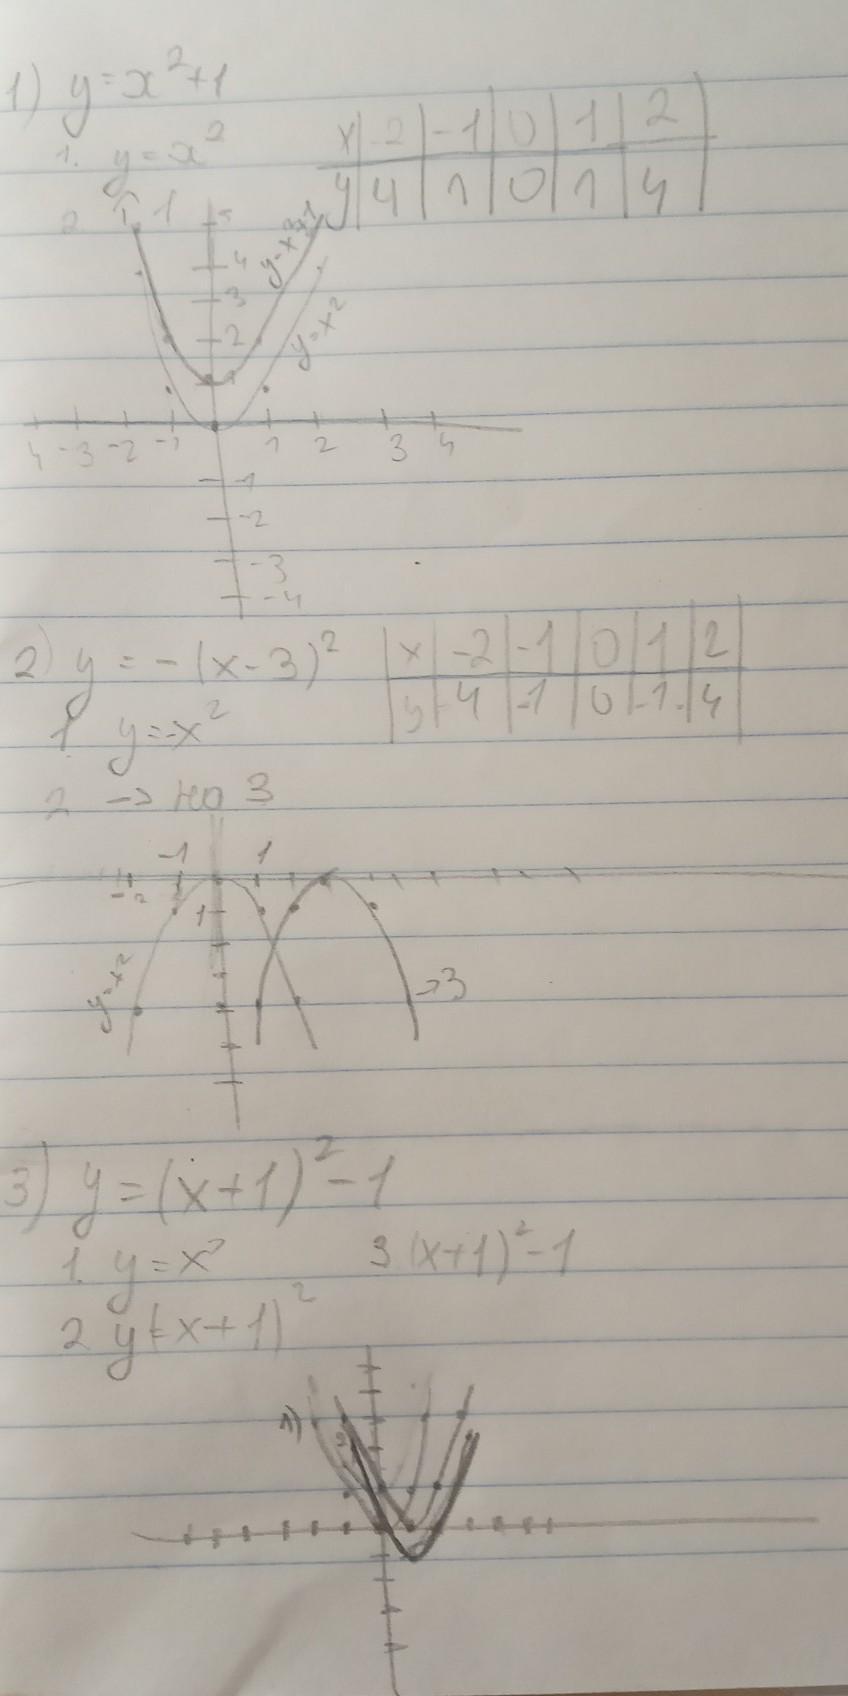 1) y=x²+1
1. y=x²
x -2 -1 0 1 2
y 4 1 0 1 4
2. ↑ 1
5
4
3
2
1
y=x²+1
y=x²
4 -3 -2 -1 1 2 3 4
-1
-2
-3
-4
2) y = -(x-3)²
x -2 -1 0 1 2
y -4 -1 0 -1 -4
1 y=-x²
2 -> на 3
-1 1
-2
1
y=x²
->3
3) y=(x+1)²-1
1. y=x²
3 (x+1)²-1
2 y=(x+1)²
1)
2